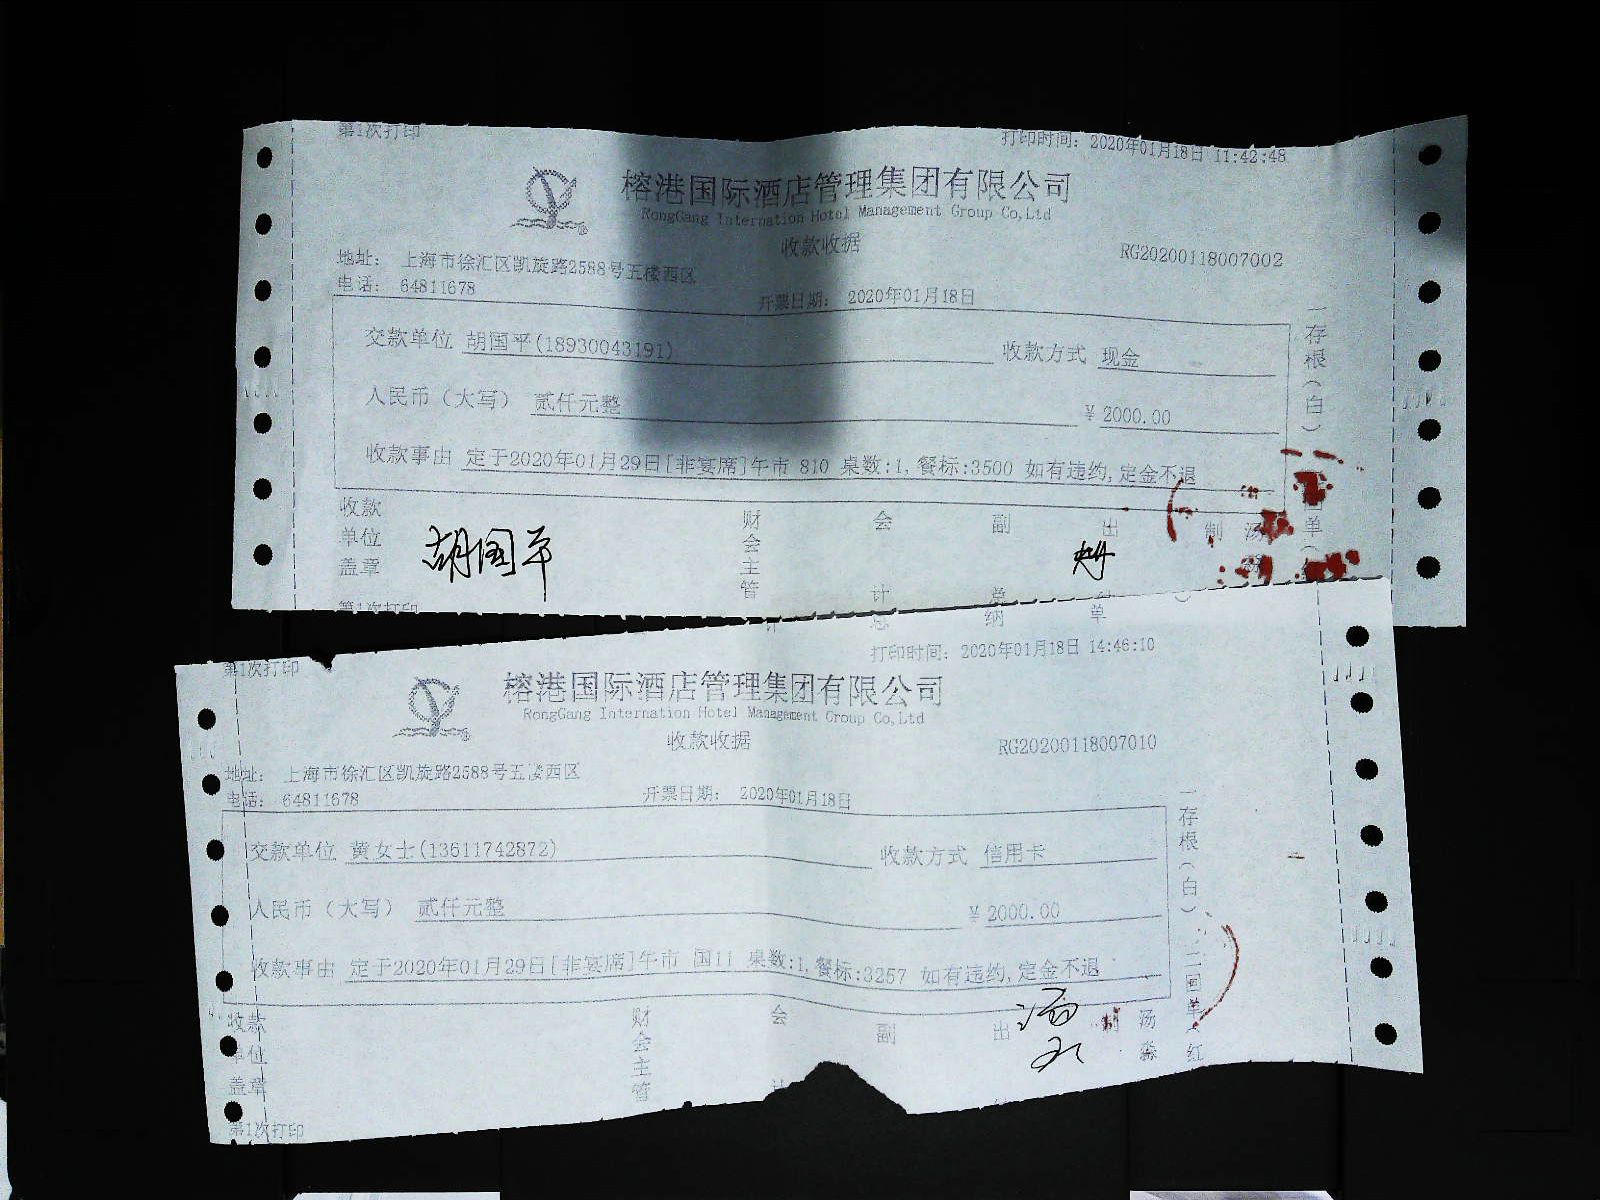 第1次打印
打印时间: 2020年01月18日 11:42:48
榕港国际酒店管理集团有限公司
RongGang Internation Hotel Management Group Co,Ltd
收款收据
RG20200118007002
地址: 上海市徐汇区凯旋路2588号五楼西区
电话: 64811678
开票日期: 2020年01月18日
交款单位 胡国平(18930043191) 收款方式 现金
人民币（大写） 贰仟元整 ¥ 2000.00
收款事由 定于2020年01月29日[非宴席]午市 810 桌数:1,餐标:3500 如有违约,定金不退
一存根(白)
回单
收款单位盖章
胡国平
财会主管
会计
副总
出纳
制单
汤
第1次打印
第1次打印
打印时间: 2020年01月18日 14:46:10
榕港国际酒店管理集团有限公司
RongGang Internation Hotel Management Group Co,Ltd
收款收据
RG20200118007010
地址: 上海市徐汇区凯旋路2588号五楼西区
电话: 64811678
开票日期: 2020年01月18日
交款单位 黄女士(13611742872) 收款方式 信用卡
人民币（大写） 贰仟元整 ¥ 2000.00
收款事由 定于2020年01月29日[非宴席]午市 国11 桌数:1,餐标:3257 如有违约,定金不退
一存根(白)
二回单(红
收款单位盖章
财会主管
会计
副
出
制
汤淼
第1次打印